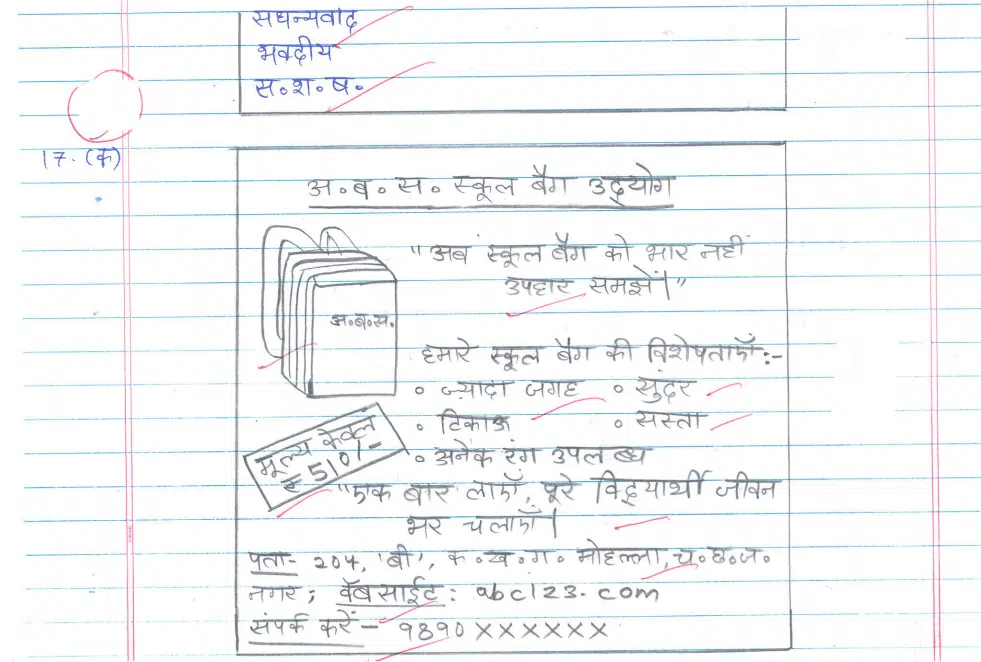 सधन्यवाद
भवदीय
स.श.ष.
17. (क)
अ.ब.स. स्कूल बैग उद्योग
"अब स्कूल बैग को भार नहीं
उपहार समझें।"
अ.ब.स.
हमारे स्कूल बैग की विशेषताएँ:-
• ज़्यादा जगह • सुंदर
• टिकाऊ • सस्ता
• अनेक रंग उपलब्ध
मूल्य केवल
₹ 510/-
"एक बार लाएँ, पूरे विद्यार्थी जीवन
भर चलाएँ।
पता- 204, 'बी', क.ख.ग. मोहल्ला, च.छ.ज.
नगर; वॅबसाईट: abc123.com
संपर्क करें- 9890XXXXXX